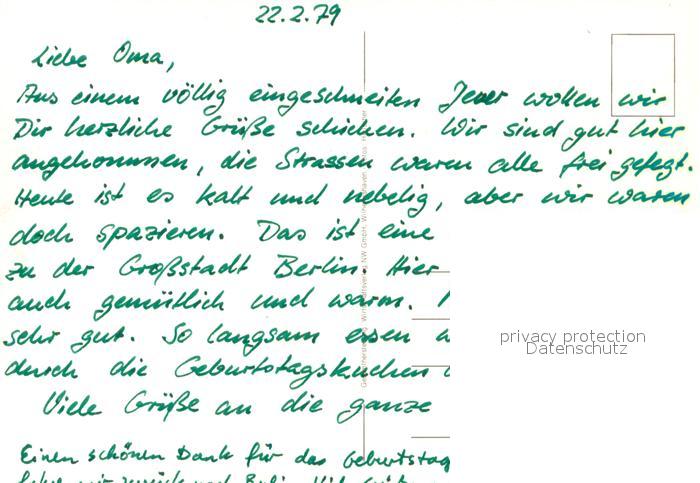 22.2.79
Liebe Oma,
Aus einem völlig eingeschneiten Jever wollen wir
Dir herzliche Grüße schicken. Wir sind gut hier
angekommen, die Strassen waren alle frei gefegt.
Heute ist es kalt und nebelig, aber wir waren
doch spazieren. Das ist eine
zu der Großstadt Berlin. Hier
auch gemütlich und warm.
sehr gut. So langsam essen
durch die Geburtstagskuchen
Viele Grüße an die ganze
Einen schönen Dank für das Geburtstag
privacy protection
Datenschutz